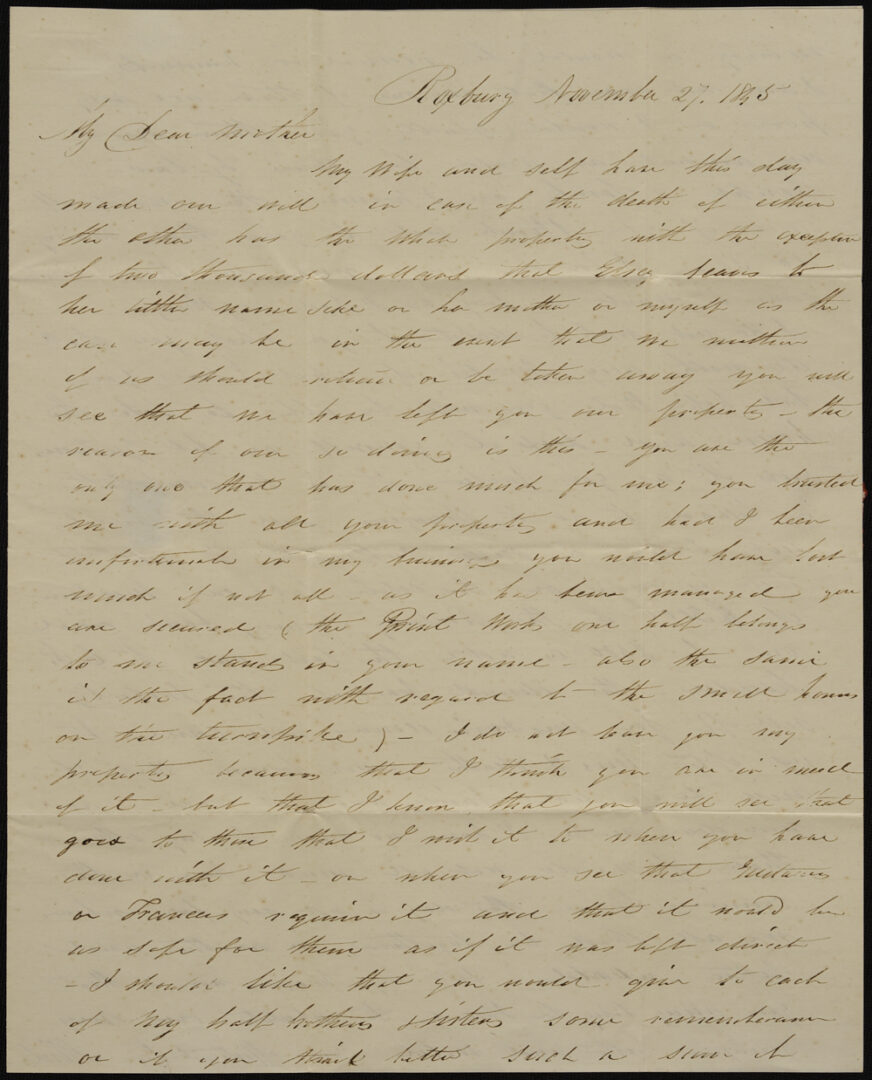 Roxbury November 27. 1845
My Dear Mother
My Wife and self have this day
made our will in case of the death of either
the other has the whole property with the exception
of two thousand dollars that Elsey leaves to
her little name sake or her mother or myself as the
case may be in the event that we neither
of us should return or be taken away you will
see that we have left you our property - the
reason of our so doing is this - you are the
only one that has done much for me; you trusted
me with all your property and had I been
unfortunate in my business you would have lost
much if not all - as it has been managed you
are secured ( the Print Works one half belongs
to me stands in your name - also the same
is the fact with regard to the small house
on the turnpike ) - I do not leave you my
property because that I think you are in need
of it - but that I know that you will see that
goes to those that I wish it to when you have
done with it - or when you see that Gustavus
or Frances require it and that it would be
as safe for them as if it was left direct
- I should like that you would give to each
of my half brothers & sisters some remembrance
or if you think better such a sum of